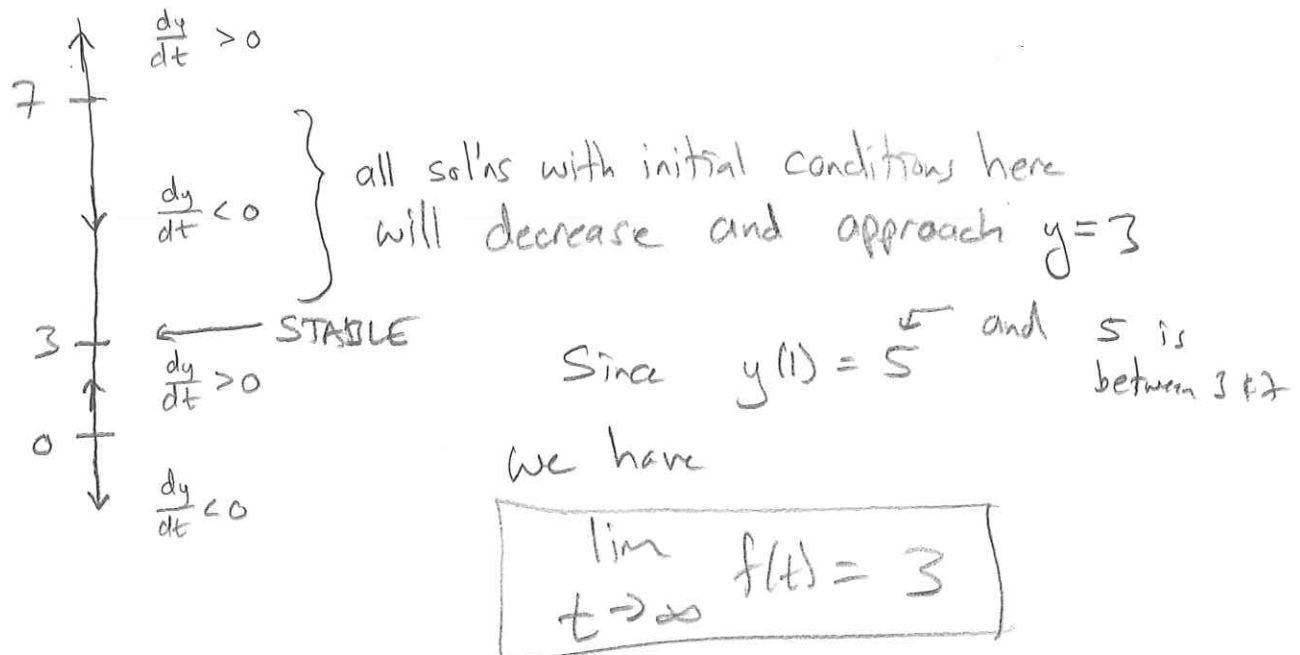 dy/dt > 0
7
all sol'ns with initial conditions here
dy/dt < 0
will decrease and approach y=3
3
STABLE
dy/dt > 0
Since y(1) = 5 and 5 is
between 3 & 7
0
we have
dy/dt < 0
lim f(t) = 3
t→∞